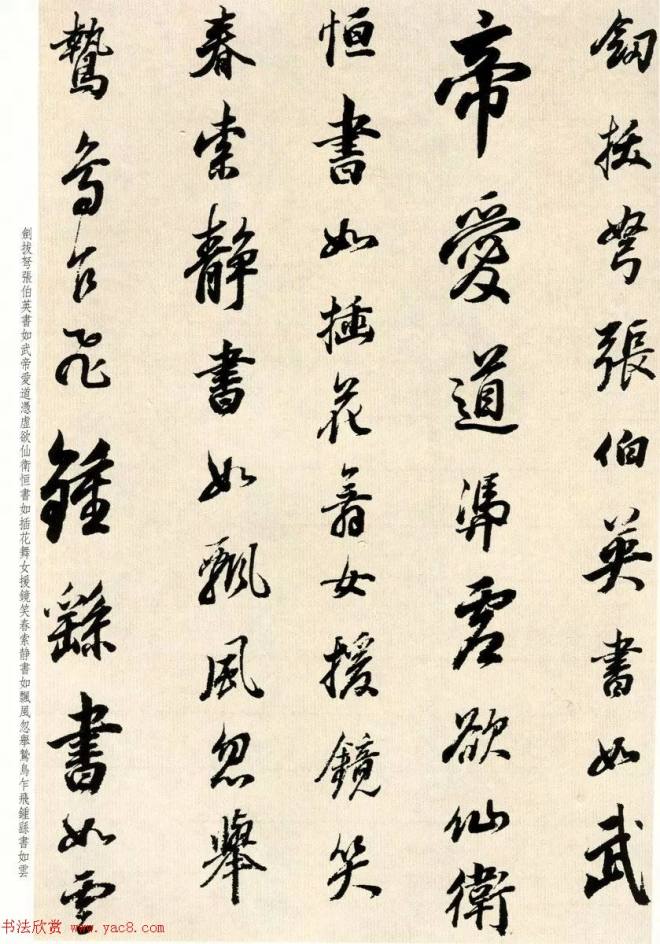 劔拔弩張伯英書如武
帝愛道馮虛欲仙衛
恒書如插花舞女援鏡笑
春索靜書如飄風忽舉
鷙鳥乍飛鍾繇書如雲
劍拔弩張伯英書如武帝愛道憑虛欲仙衛恒書如插花舞女援鏡笑春索靜書如飄風忽舉鷙鳥乍飛鍾繇書如雲
书法欣赏 www.yac8.com